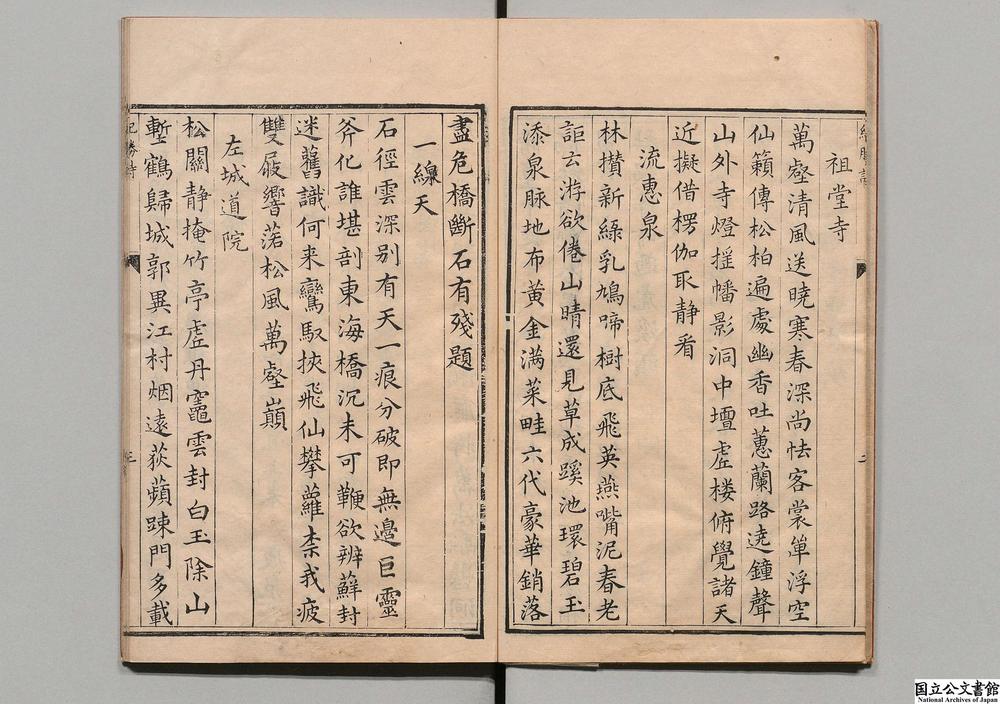 祖堂寺
萬壑清風送曉寒春深尚怯客裳單浮空
仙籟傳松柏遍處幽香吐蕙蘭路遶鐘聲
山外寺燈搖幡影洞中壇虛楼俯覺諸天
近擬借楞伽取静看
流惠泉
林攅新綠乳鳩啼樹底飛英燕嘴泥春老
詎云游欲倦山晴還見草成蹊池環碧玉
添泉脉地布黄金满菜畦六代豪華銷落
盡危橋斷石有殘題
一線天
石徑雲深别有天一痕分破即無邊巨靈
斧化誰堪剖東海橋沉未可鞭欲辨蘚封
迷舊識何来鸞馭挾飛仙攀蘿柰我疲
雙屐響落松風萬壑巔
左城道院
松關静掩竹亭虛丹竈雲封白玉除山
塹鶴歸城郭異江村烟遠荻蘋踈門多載
紀勝詩
国立公文書館
National Archives of Japan